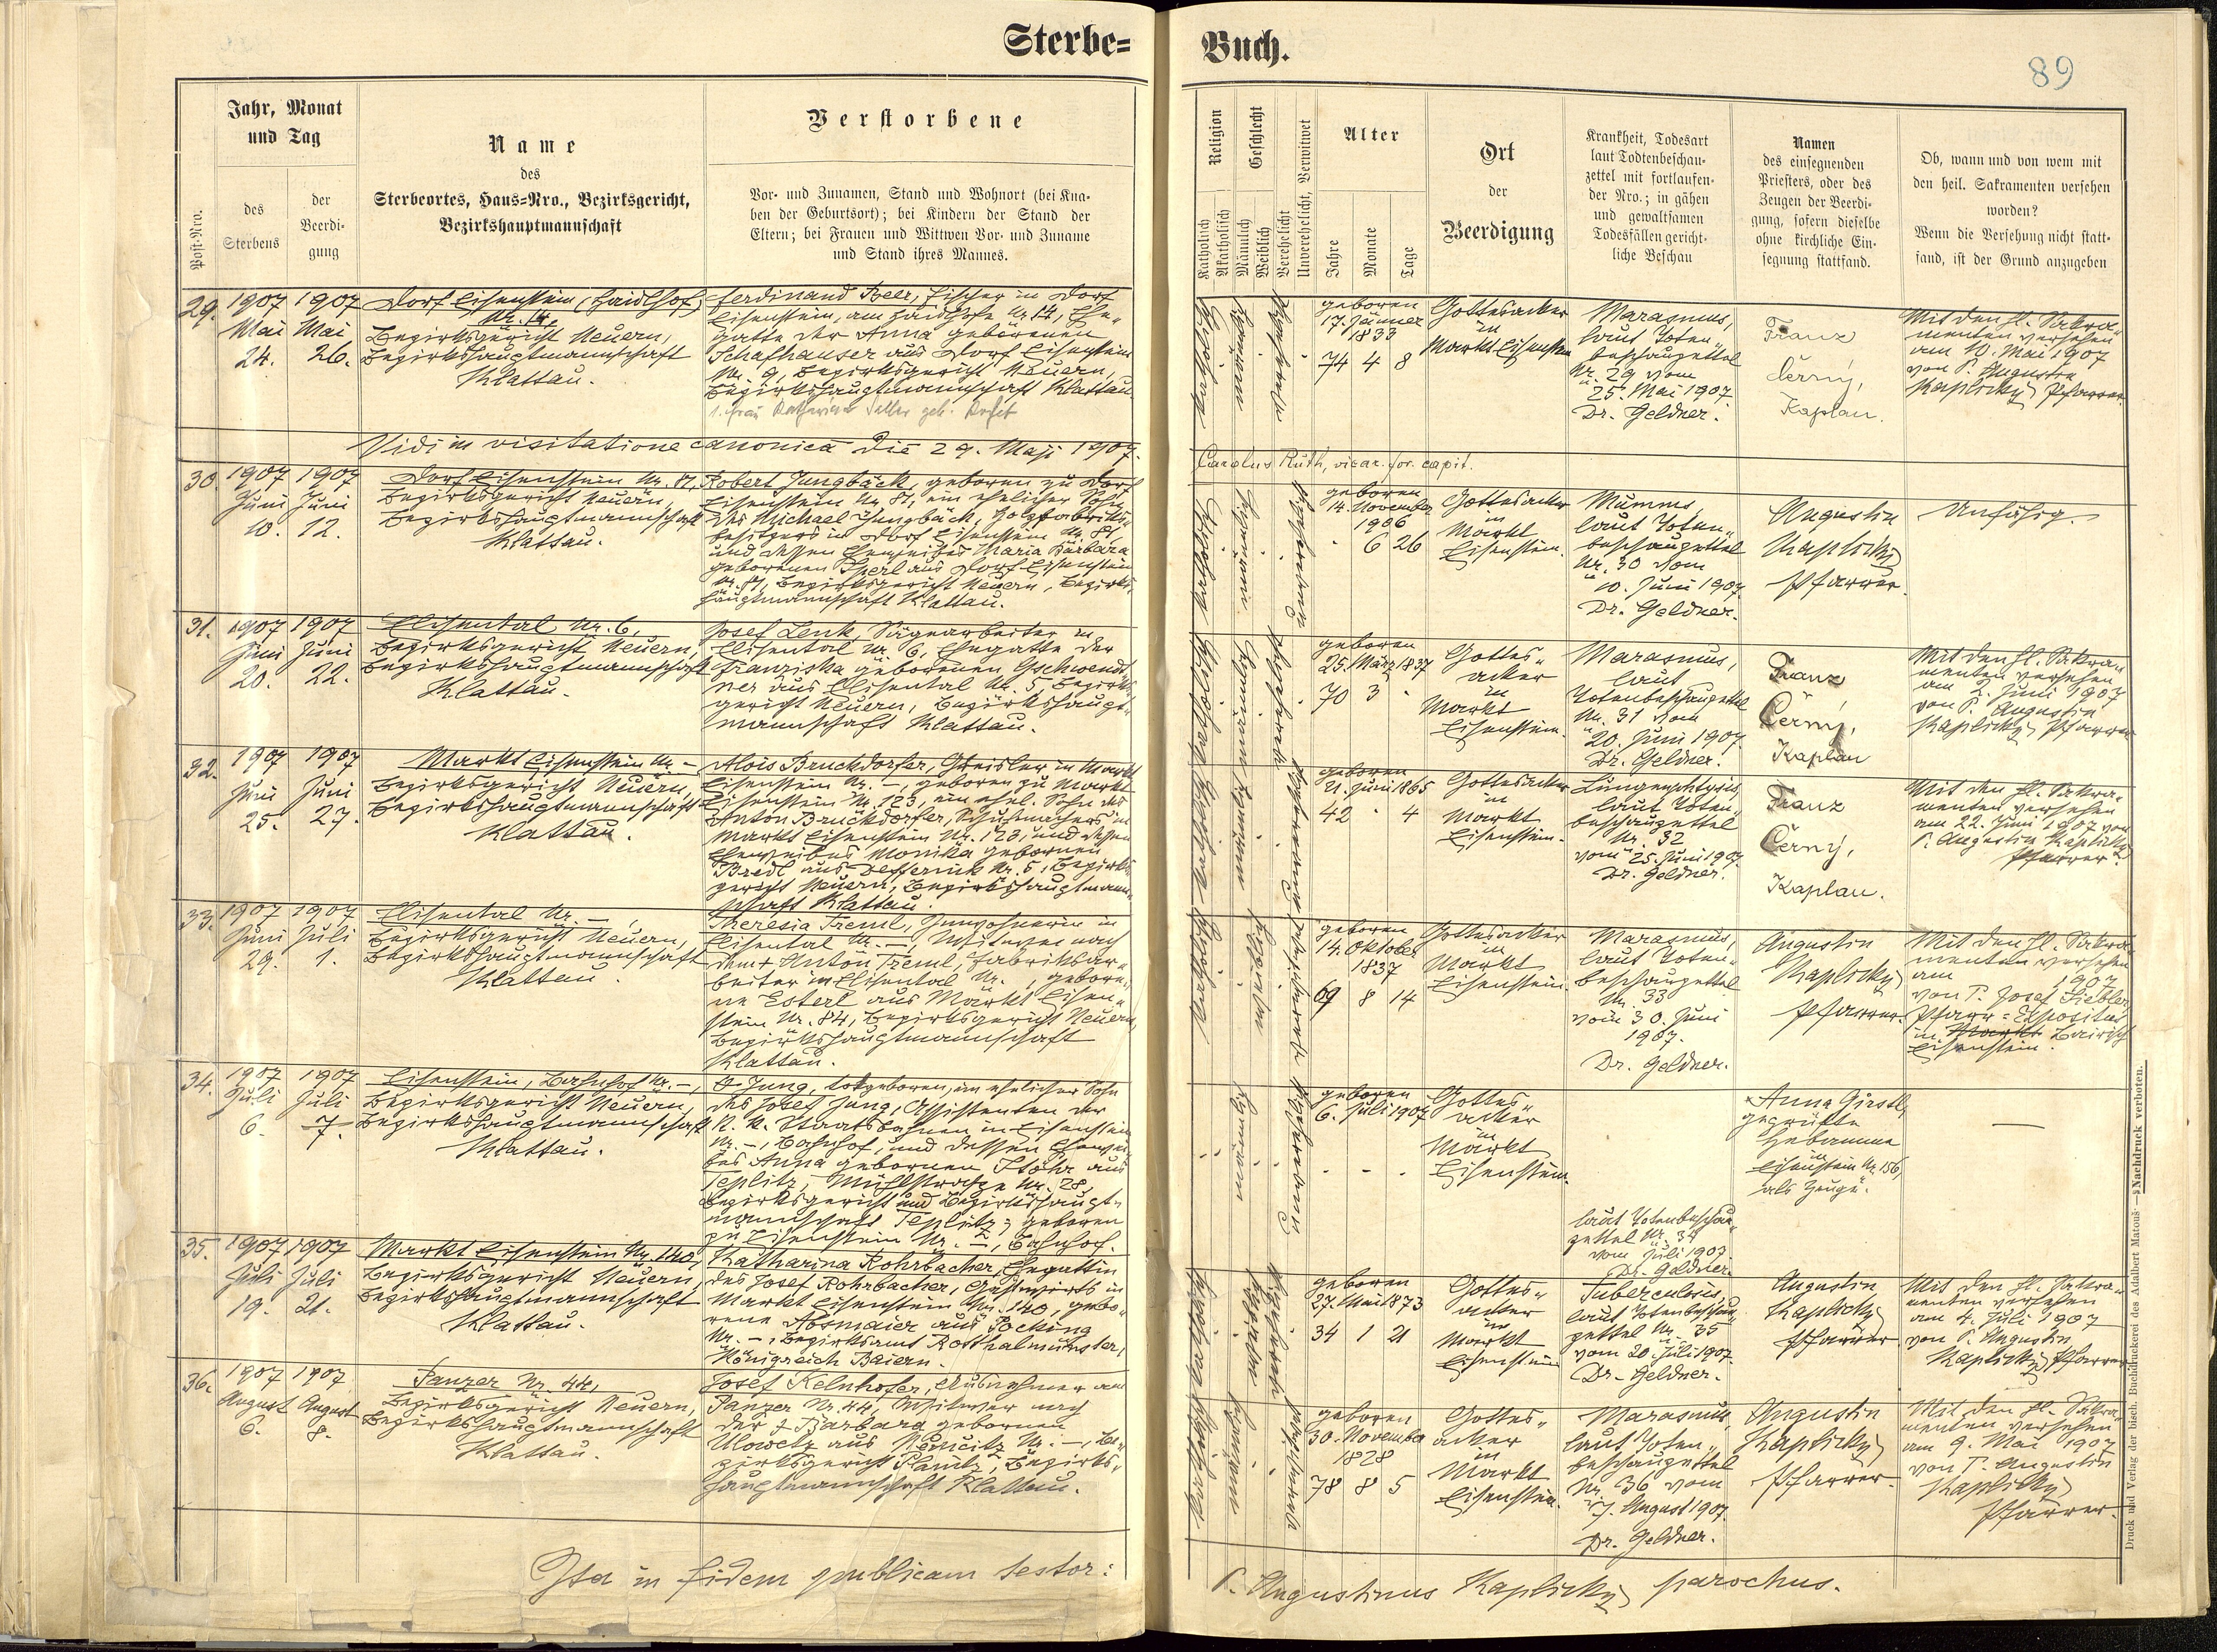 Sterbe= Buch.
89
Jahr, Monat
und Tag
Post-Nro.
des
Sterbens
der
Beerdi-
gung
Name
des
Sterbeortes, Haus-Nro., Bezirksgericht,
Bezirkshauptmannschaft
Verstorbene
Vor- und Zunamen, Stand und Wohnort (bei Kna-
ben der Geburtsort); bei Kindern der Stand der
Eltern; bei Frauen und Wittwen Vor- und Zuname
und Stand ihres Mannes.
Religion
Katholisch
Akatholisch
Geschlecht
Männlich
Weiblich
Verehelicht
Unverehelicht, Verwitwet
Alter
Jahre
Monate
Tage
Ort
der
Beerdigung
Krankheit, Todesart
laut Todtenbeschau-
zettel mit fortlaufen-
der Nro.; in gähen
und gewaltsamen
Todesfällen gericht-
liche Beschau
Namen
des einsegnenden
Priesters, oder des
Zeugen der Beerdi-
gung, sofern dieselbe
ohne kirchliche Ein-
segnung stattfand.
Ob, wann und von wem mit
den heil. Sakramenten versehen
worden?
Wenn die Versehung nicht statt-
fand, ist der Grund anzugeben
29.
1907
Mai
24.
1907
Mai
26.
Dorf Eisenstein (Haidlhof)
Nr. 14,
Bezirksgericht Neuern,
Bezirkshauptmannschaft
Klattau.
Ferdinand Beer, Fischer in Dorf
Eisenstein, am Haidlhofe Nr. 14, Ehe-
gatte der Anna geborenen
Schafhauser aus Dorf Eisenstein
Nr. 9, Bezirksgericht Neuern,
Bezirkshauptmannschaft Klattau.
geboren
17. Jänner
1833
74 4 8
Gottesacker
in
Markt Eisenstein
Marasmus,
laut Toten-
beschauzettel
Nr. 29 vom
25. Mai 1907
Dr. Geldner.
Franz
Černý,
Kaplan.
Mit den hl. Sakra-
menten versehen
am 10. Mai 1907
von P. Augustin
Kaplický Pfarrer.
Vidi in visitatione canonica die 29. Maji 1907.
Carolus Ruth, vicar. for. capit.
30.
1907
Juni
10.
1907
Juni
12.
Dorf Eisenstein Nr. 81,
Bezirksgericht Neuern,
Bezirkshauptmannschaft
Klattau.
Robert Jungbäck, geboren zu Dorf
Eisenstein Nr. 81, ein ehelicher Sohn
des Michael Jungbäck, Holzfabriks-
besitzers in Dorf Eisenstein Nr. 81,
und dessen Eheweibes Maria Barbara
geborenen Sperl aus Dorf Eisenstein
Nr. 81, Bezirksgericht Neuern, Bezirks-
hauptmannschaft Klattau.
geboren
14. November
1906
6 26
Gottesacker
in
Markt
Eisenstein.
Mumms,
laut Toten-
beschauzettel
Nr. 30 vom
10. Juni 1907.
Dr. Geldner.
Augustin
Kaplický
Pfarrer.
Unfähig.
31.
1907
Juni
20.
1907
Juni
22.
Elisental Nr. 6,
Bezirksgericht Neuern,
Bezirkshauptmannschaft
Klattau.
Josef Lenk, Sägearbeiter in
Elisental Nr. 6, Ehegatte der
Franziska geborenen Gschwendt-
ner aus Elisental Nr. 5, Bezirks-
gericht Neuern, Bezirkshaupt-
mannschaft Klattau.
geboren
25. März 1837
70 3
Gottes-
acker
in
Markt
Eisenstein.
Marasmus,
laut
Totenbeschauzettel
Nr. 31 vom
20. Juni 1907.
Dr. Geldner.
Franz
Černý,
Kaplan
Mit den hl. Sakra-
menten versehen
am 2. Juni 1907
von P. Augustin
Kaplický Pfarrer
32.
1907
Juni
25.
1907
Juni
27.
Markt Eisenstein Nr. –
Bezirksgericht Neuern,
Bezirkshauptmannschaft
Klattau.
Alois Bruckdorfer, Greisler in Markt
Eisenstein Nr. –, geboren zu Markt
Eisenstein Nr. 123, ein ehel. Sohn des
Anton Bruckdorfer, Schuhmachers in
Markt Eisenstein Nr. 123, und dessen
Eheweibes Monika gebornen
Bredl aus Defferník Nr. 5, Bezirks-
gericht Neuern, Bezirkshauptmann-
schaft Klattau.
geboren
21. Juni 1865
42 4
Gottesacker
in
Markt
Eisenstein.
Lungenphtysis,
laut Toten-
beschauzettel
Nr. 32
vom 25. Juni 1907.
Dr. Geldner.
Franz
Černý,
Kaplan.
Mit den hl. Sakra-
menten versehen
am 22. Juni 1907 von
P. Augustin Kaplický
Pfarrer.
33.
1907
Juni
29.
1907
Juli
1.
Elisental Nr. –,
Bezirksgericht Neuern,
Bezirkshauptmannschaft
Klattau.
Theresia Treml, Inwohnerin in
Elisental Nr. –, Witwe nach
dem † Anton Treml, Fabriksar-
beiter in Elisental Nr. , gebore-
ne Esterl aus Markt Eisen-
stein Nr. 84, Bezirksgericht Neuern,
Bezirkshauptmannschaft
Klattau.
geboren
14. Oktober
1837
69 8 14
Gottesacker
in
Markt
Eisenstein.
Marasmus,
laut Toten-
beschauzettel
Nr. 33
vom 30. Juni
1907.
Dr. Geldner.
Augustin
Kaplický
Pfarrer.
Mit den hl. Sakra-
menten versehen
am 1907
von P. Josef
Pfarr-Expositus
in Markt Bairisch
Eisenstein.
34.
1907
Juli
6.
1907
Juli
7.
Eisenstein, Bahnhof Nr. –,
Bezirksgericht Neuern,
Bezirkshauptmannschaft
Klattau.
† Jung, totgeboren, ein ehelicher Sohn
des Josef Jung, Assistenten der
K. K. Staatsbahnen in Eisenstein
Nr. –, Bahnhof, und dessen Ehewei-
bes Anna gebornen Stöhr aus
Teplitz, Mühlstrasse Nr. 28,
Bezirksgericht und Bezirkshaupt-
mannschaft Teplitz; geboren
zu Eisenstein Nr. –, Bahnhof.
geboren
6. Juli 1907
Gottes-
acker
in
Markt
Eisenstein.
laut Totenbeschau-
zettel Nr. 34
vom Juli 1907.
Dr. Geldner.
Anna Girstl,
geprüfte
Hebamme
in
Eisenstein Nr. 156,
als Zeuge.
—
35.
1907
Juli
19.
1907
Juli
21.
Markt Eisenstein Nr. 140,
Bezirksgericht Neuern,
Bezirkshauptmannschaft
Klattau.
Katharina Rohrbacher, Ehegattin
des Josef Rohrbacher, Gastwirts in
Markt Eisenstein Nr. 140, gebo-
rene Aosmaier aus Pocking
Nr. –, Bezirksamt Rotthalmünster,
Königreich Baiern.
geboren
27. Mai 1873
34 1 21
Gottes-
acker
in
Markt
Eisenstein
Tuberculosis,
laut Totenbeschau-
zettel Nr. 35
vom 20. Juli 1907.
Dr. Geldner.
Augustin
Kaplický
Pfarrer.
Mit den hl. Sakra-
menten versehen
am 4. Juli 1907
von P. Augustin
Kaplický Pfarrer
36.
1907
August
6.
1907
August
8.
Panzer Nr. 44,
Bezirksgericht Neuern,
Bezirkshauptmannschaft
Klattau.
Josef Kelnhofer, Ausnehmer am
Panzer Nr. 44, Witwer nach
der † Barbara gebornen
Ulowetz aus Nr. –, Be-
zirksgericht Planitz, Bezirks-
hauptmannschaft Klattau.
geboren
30. November
1828
78 8 5
Gottes-
acker
in
Markt
Eisenstein.
Marasmus,
laut Toten-
beschauzettel
Nr. 36 vom
7. August 1907.
Dr. Geldner.
Augustin
Kaplický
Pfarrer.
Mit den hl. Sakra-
menten versehen
am 9. Mai 1907
von P. Augustin
Kaplický
Pfarrer.
Ita in fidem publicam testor:
P. Augustinus Kaplický parochus.
Druck und Verlag der bisch. Buchdruckerei des Adalbert Matouš. — Nachdruck verboten.